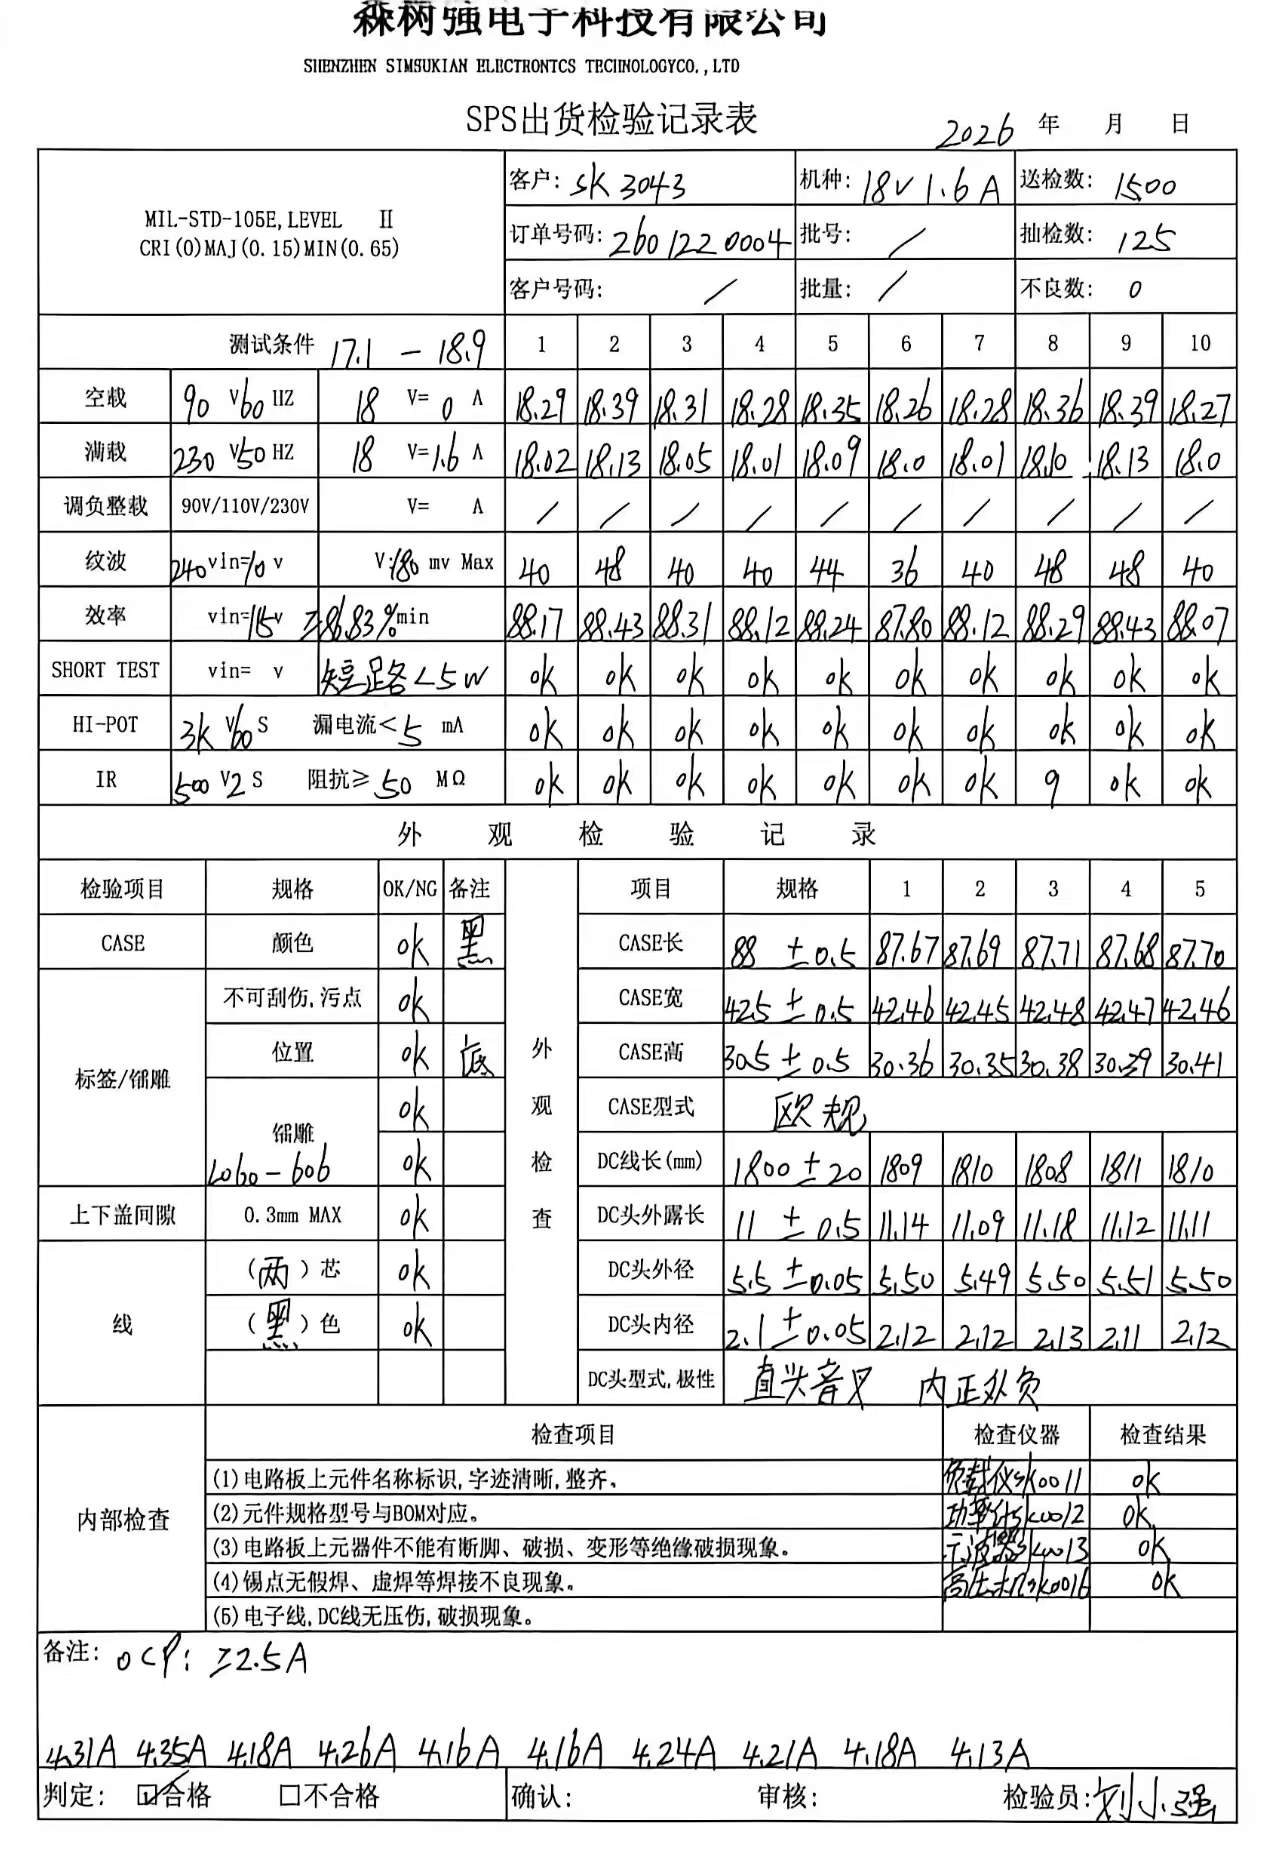 森树强电子科技有限公司
SHENZHEN SIMSUKIAN ELECTRONTCS TECHNOLOGYCO.,LTD
SPS出货检验记录表
2026 年 月 日
MIL-STD-105E, LEVEL II
CRI(0)MAJ(0.15)MIN(0.65)
客户: SK3043 机种: 18V1.6A 送检数: 1500
订单号码: 2601220004 批号: / 抽检数: 125
客户号码: / 批量: / 不良数: 0
测试条件 17.1 - 18.9 1 2 3 4 5 6 7 8 9 10
空载 90 V60 HZ 18 V= 0 A 18.29 18.39 18.31 18.28 18.35 18.26 18.28 18.36 18.39 18.27
满载 230 V50 HZ 18 V=1.6 A 18.02 18.13 18.05 18.01 18.09 18.0 18.01 18.10 18.13 18.0
调负整载 90V/110V/230V V= A / / / / / / / / / /
纹波 240 vin=10 v V:180 mv Max 40 48 40 40 44 36 40 48 48 40
效率 vin=115v ≥86.83%min 88.17 88.43 88.31 88.12 88.24 87.80 88.12 88.29 88.43 88.07
SHORT TEST vin= v 短路<5W ok ok ok ok ok ok ok ok ok ok
HI-POT 3K V60 S 漏电流< 5 mA ok ok ok ok ok ok ok ok ok ok
IR 500 V2 S 阻抗≥ 50 MΩ ok ok ok ok ok ok ok 9 ok ok
外观检验记录
检验项目 规格 OK/NG 备注 项目 规格 1 2 3 4 5
CASE 颜色 ok 黑 CASE长 88 ±0.5 87.67 87.69 87.71 87.68 87.70
不可刮伤,污点 ok CASE宽 42.5 ±0.5 42.46 42.45 42.48 42.47 42.46
标签/镭雕 位置 ok 底 外观检查 CASE高 30.5 ±0.5 30.36 30.35 30.38 30.39 30.41
镭雕 ok CASE型式 欧规
2060-606 ok DC线长(mm) 1800±20 1809 1810 1808 1811 1810
上下盖间隙 0.3mm MAX ok DC头外露长 11 ±0.5 11.14 11.09 11.18 11.12 11.11
线 (两)芯 ok DC头外径 5.5±0.05 5.50 5.49 5.50 5.51 5.50
(黑)色 ok DC头内径 2.1±0.05 2.12 2.12 2.13 2.11 2.12
DC头型式,极性 直头音叉 内正外负
内部检查 检查项目 检查仪器 检查结果
(1)电路板上元件名称标识,字迹清晰,整齐。 负载仪SK0011 ok
(2)元件规格型号与BOM对应。 功率计SK0012 OK
(3)电路板上元器件不能有断脚、破损、变形等绝缘破损现象。 示波器SK0013 OK
(4)锡点无假焊、虚焊等焊接不良现象。 高压机SK0016 OK
(5)电子线,DC线无压伤,破损现象。
备注: OCP: ≥2.5A
4.31A 4.35A 4.18A 4.26A 4.16A 4.16A 4.24A 4.21A 4.18A 4.13A
判定: ☑合格 □不合格 确认: 审核: 检验员:刘小强